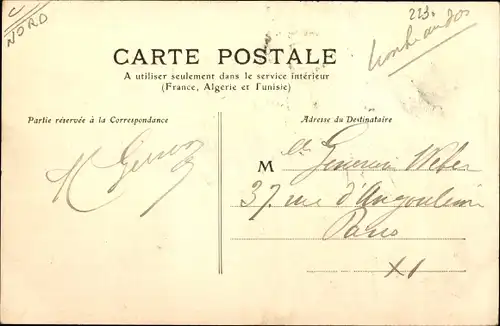 NORD
223
CARTE POSTALE
A utiliser seulement dans le service intérieur
(France, Algérie et Tunisie)
Partie réservée à la Correspondance
Adresse du Destinataire
M lle Geneviève Weber
37. rue d'Angoulême
Paris
XI